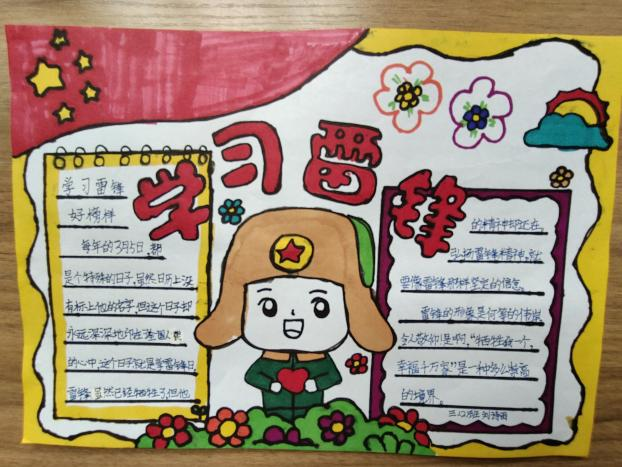 学习雷锋
学习雷锋
好榜样
每年的3月5日,都
是个特殊的日子,虽然日历上没
有标上他的名字,但这个日子却
永远深深地印在每国人
的心中,这个日子就是学雷锋日
雷锋虽然已经牺牲了,但他
的精神却还在。
弘扬雷锋精神,就
要像雷锋那样坚定的信念。
雷锋的形象是何等的伟岸
令人敬仰!是啊,“牺牲我一个,
幸福千万家”是一种多么崇高
的境界。
三.12班 刘